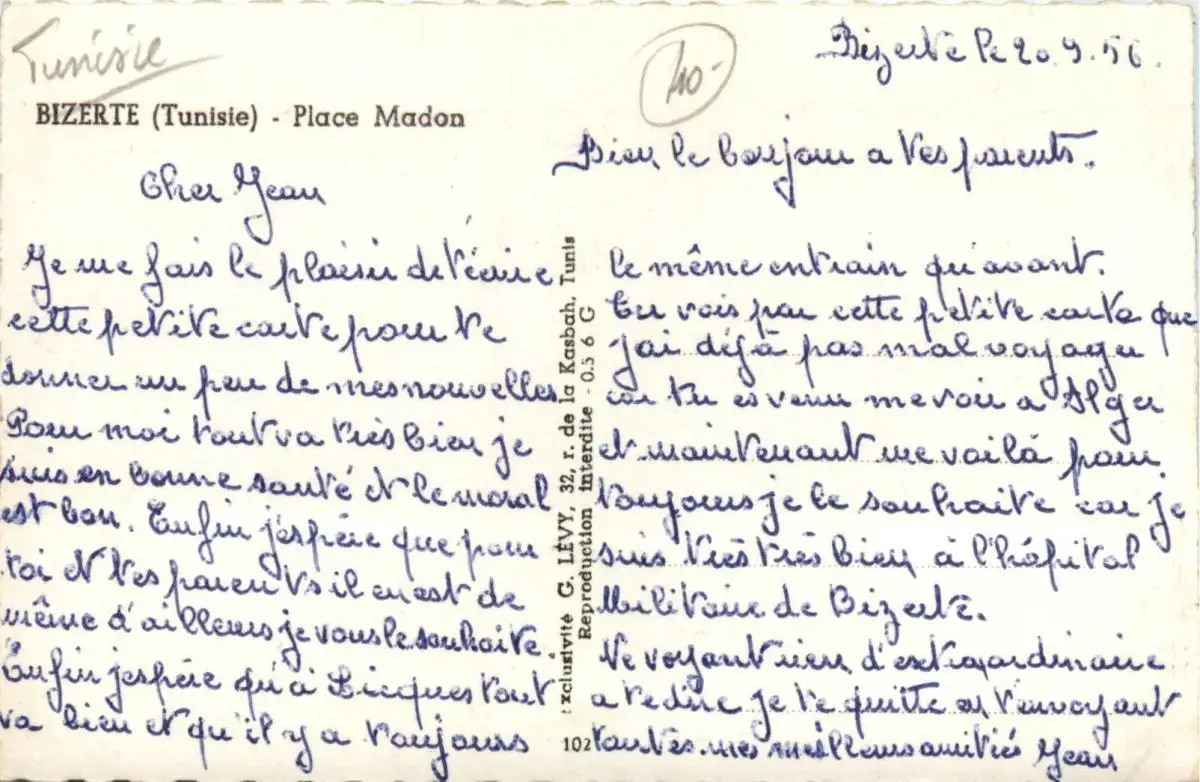 Tunisie
40-
BIZERTE (Tunisie) - Place Madon
Bizerte le 20.9.56.
Bien le bonjour a tes parents.
Cher Jean
Je me fais le plaisir de t'écrire
cette petite carte pour te
donner un peu de mes nouvelles.
Pour moi tout va très bien je
suis en bonne santé et le moral
est bon. Enfin j'espére que pour
toi et tes parents il en est de
même d'ailleurs je vous le souhaite.
Enfin j'espére qu'a Licques tout
va bien et qu'il y a toujours
le même entrain qu'avant.
Tu vois par cette petite carte que
j'ai déjà pas mal voyager
car tu es venu me voir a Alger
et maintenant me voilà pour
toujours je le souhaite car je
suis très très bien à l'hôpital
Militaire de Bizerte.
Ne voyant rien d'extraordinaire
a te dire je te quitte en t'envoyant
toutes mes meilleurs amitiés Jean
Exclusivité G. LÉVY, 32, r. de la Kasbah, Tunis
Reproduction interdite - 0.5 6 G
102